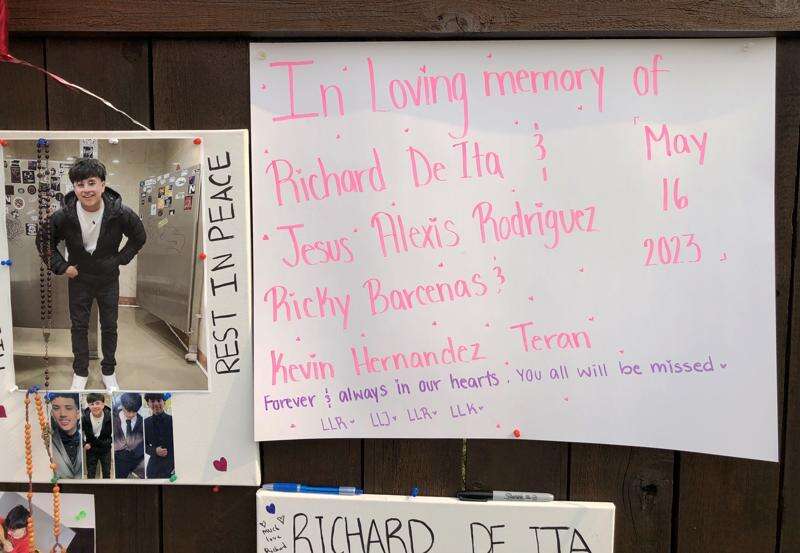 In Loving memory of
Richard De Ita &
Jesus Alexis Rodriguez
Ricky Barcenas &
Kevin Hernandez Teran
May
16
2023
Forever & always in our hearts. You all will be missed
LLR LLJ LLR LLK
REST IN PEACE
much
love
Richard
RICHARD DE ITA